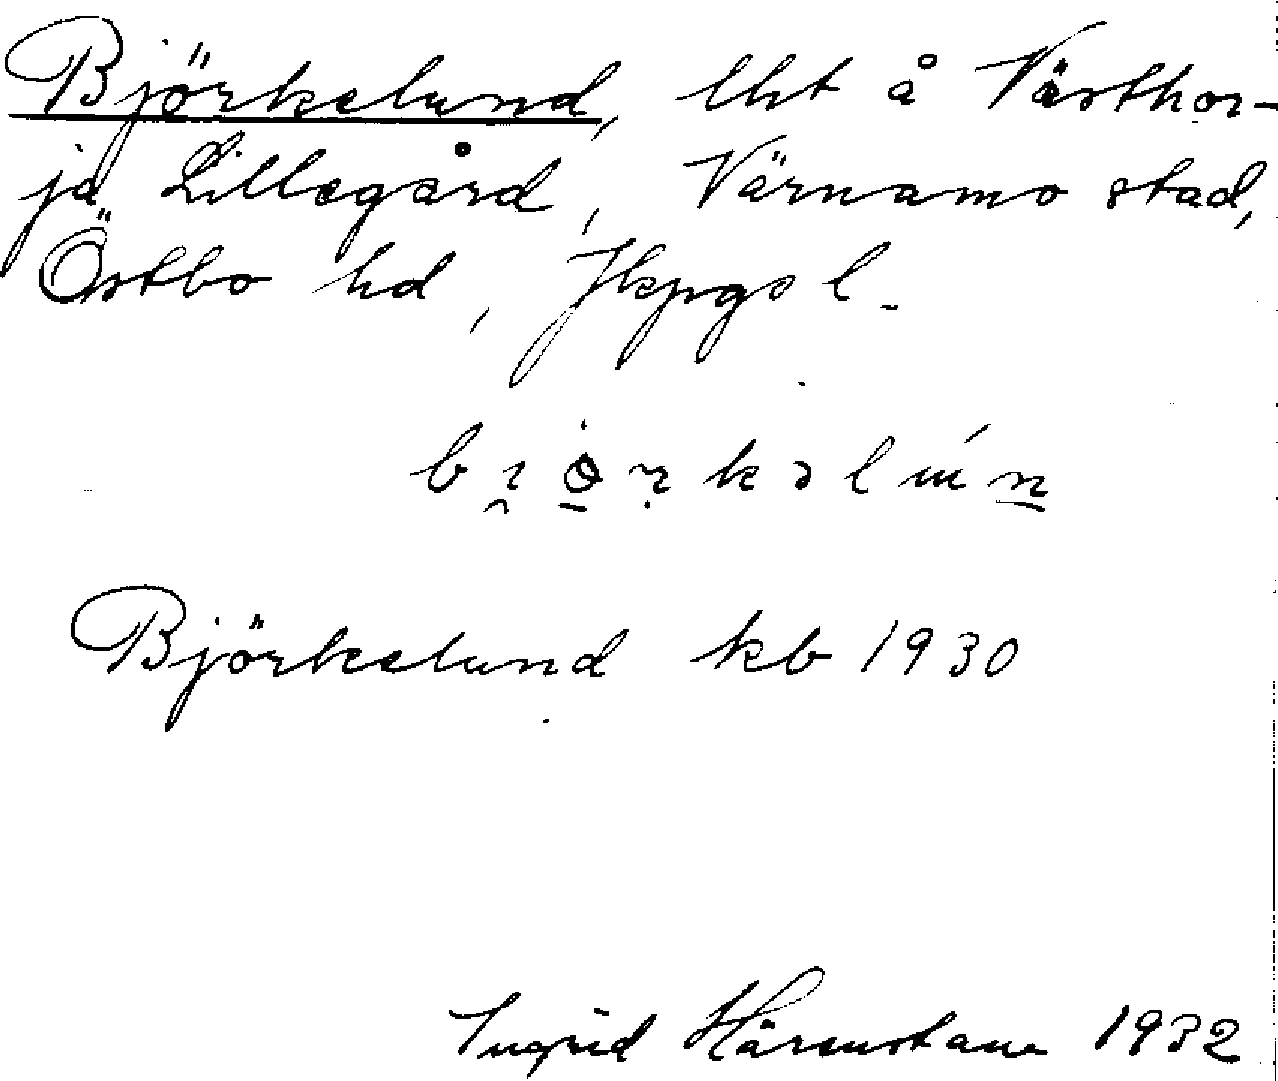 Björkelund, lht å Västhor-
ja Lillegård, Värnamo stad,
Östbo hd, Jkpgs l.
Björkelund kb 1930
Ingrid Härenstam 1932